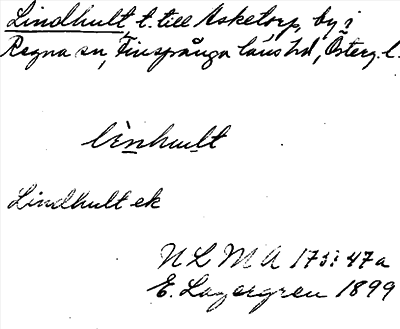 Lindhult t. till Asketorp, by i
Regna sn, Finspånga läns hd, Österg. l.
lìnhul̀t
Lindhult ek
N L M A 173: 47a
E. Lagergren 1899